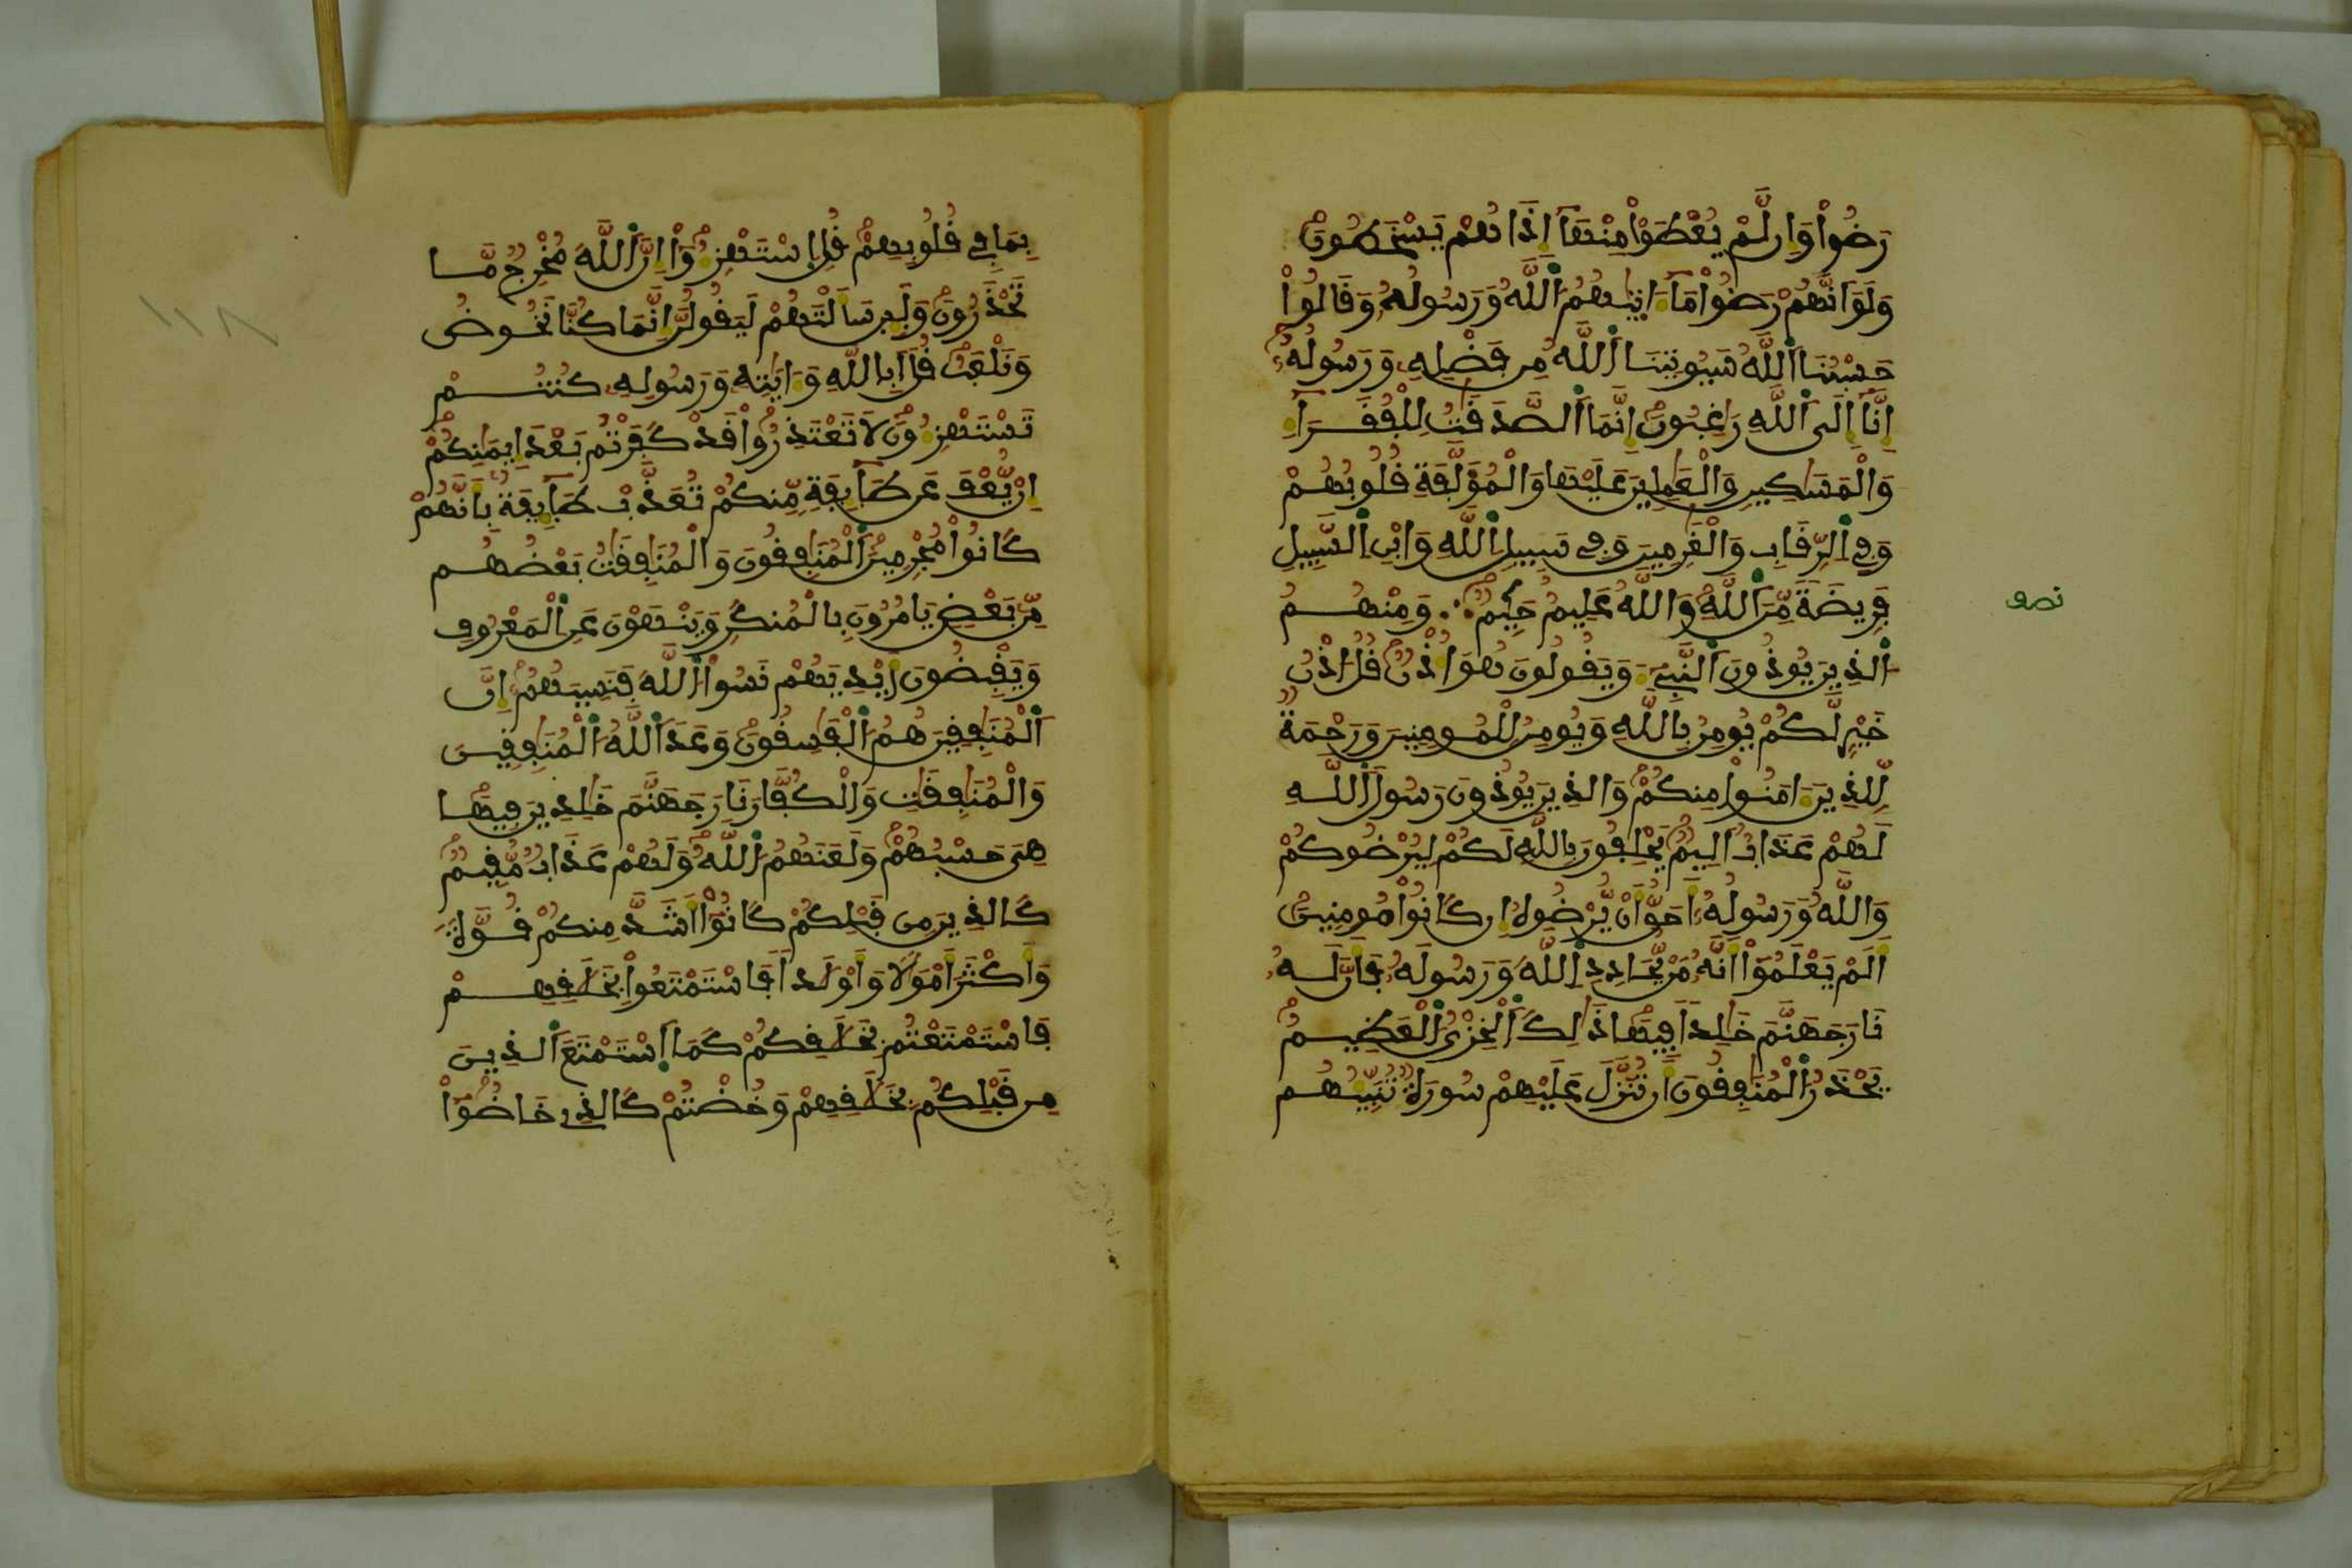 رَضُواْ وَإِن لَّمْ يُعْطَوْاْ مِنْهَآ إِذَا هُمْ يَسْخَطُونَ
وَلَوَ اَنَّهُمْ رَضُواْ مَآ ءَاتِيٰهُمُ اُللَّهُ وَرَسُولُهُۥ وَقَالُواْ
حَسْبُنَا اَللَّهُ سَيُوتِينَا اَللَّهُ مِن فَضْلِهِۦ وَرَسُولُهُۥٓ
إِنَّآ إِلَى اَللَّهِ رَٰغِبُونَ إِنَّمَا اَلصَّدَقَٰتُ لِلْفُقَرَآءِ
وَالْمَسَٰكِينِ وَالْعَٰمِلِينَ عَلَيْهَا وَالْمُؤَلَّفَةِ قُلُوبُهُمْ
وَفِي اِلرِّقَابِ وَالْغَٰرِمِينَ وَفِي سَبِيلِ اِللَّهِ وَابْنِ اِلسَّبِيلِ
فَرِيضَةً مِّنَ اَللَّهِ وَاللَّهُ عَلِيمٌ حَكِيمٌ ؞ وَمِنْهُمُ
اُلذِينَ يُوذُونَ اَلنَّبِيٓءَ وَيَقُولُونَ هُوَ أُذْنٌ قُلُ اذْنُ
خَيْرٍ لَّكُمْ يُومِنُ بِاللَّهِ وَيُومِنُ لِلْمُومِنِينَ وَرَحْمَةٌ
لِّلذِينَ ءَامَنُواْ مِنكُمْ وَالذِينَ يُوذُونَ رَسُولَ اَللَّهِ
لَهُمْ عَذَابٌ اَلِيمٌ يَحْلِفُونَ بِاللَّهِ لَكُمْ لِيُرْضُوكُمْ
وَاللَّهُ وَرَسُولُهُۥٓ أَحَقُّ أَنْ يُّرْضُوهُ إِن كَانُواْ مُومِنِينَ
أَلَمْ يَعْلَمُوٓاْ أَنَّهُۥ مَنْ يُّحَادِدِ اِللَّهَ وَرَسُولَهُۥ فَأَنَّ لَهُۥ
نَارَ جَهَنَّمَ خَٰلِداً فِيهَا ذَٰلِكَ اَلْخِزْيُ اُلْعَظِيمُ
يَحْذَرُ اُلْمُنَٰفِقُونَ أَن تُنَزَّلَ عَلَيْهِمْ سُورَةٌ تُنَبِّئُهُم
نصف
بِمَا فِي قُلُوبِهِمْ قُلِ اِسْتَهْزِءُوٓاْ إِنَّ اَللَّهَ مُخْرِجٌ مَّا
تَحْذَرُونَ وَلَئِن سَأَلْتَهُمْ لَيَقُولُنَّ إِنَّمَا كُنَّا نَخُوضُ
وَنَلْعَبُ قُلَ اَبِاللَّهِ وَءَايَٰتِهِۦ وَرَسُولِهِۦ كُنتُمْ
تَسْتَهْزِءُونَ لَا تَعْتَذِرُواْ قَدْ كَفَرْتُم بَعْدَ إِيمَٰنِكُمْ
إِنْ يُّعْفَ عَن طَآئِفَةٍ مِّنكُمْ تُعَذَّبْ طَآئِفَةٌ بِأَنَّهُمْ
كَانُواْ مُجْرِمِينَ اَلْمُنَٰفِقُونَ وَالْمُنَٰفِقَٰتُ بَعْضُهُم
مِّنۢ بَعْضٍ يَامُرُونَ بِالْمُنكَرِ وَيَنْهَوْنَ عَنِ اِلْمَعْرُوفِ
وَيَقْبِضُونَ أَيْدِيَهُمْ نَسُواْ اُللَّهَ فَنَسِيَهُمُۥٓ إِنَّ
اَلْمُنَٰفِقِينَ هُمُ اُلْفَٰسِقُونَ وَعَدَ اَللَّهُ اُلْمُنَٰفِقِينَ
وَالْمُنَٰفِقَٰتِ وَالْكُفَّارَ نَارَ جَهَنَّمَ خَٰلِدِينَ فِيهَا
هِيَ حَسْبُهُمْ وَلَعَنَهُمُ اُللَّهُ وَلَهُمْ عَذَابٌ مُّقِيمٌ
كَالذِينَ مِن قَبْلِكُمْ كَانُوٓاْ أَشَدَّ مِنكُمْ قُوَّةً
وَأَكْثَرَ أَمْوَٰلاً وَأَوْلَٰداً فَاسْتَمْتَعُواْ بِخَلَٰقِهِمْ
فَاسْتَمْتَعْتُم بِخَلَٰقِكُمْ كَمَا اَسْتَمْتَعَ اَلذِينَ
مِن قَبْلِكُم بِخَلَٰقِهِمْ وَخُضْتُمْ كَالذِي خَاضُوٓاْ
١١٨